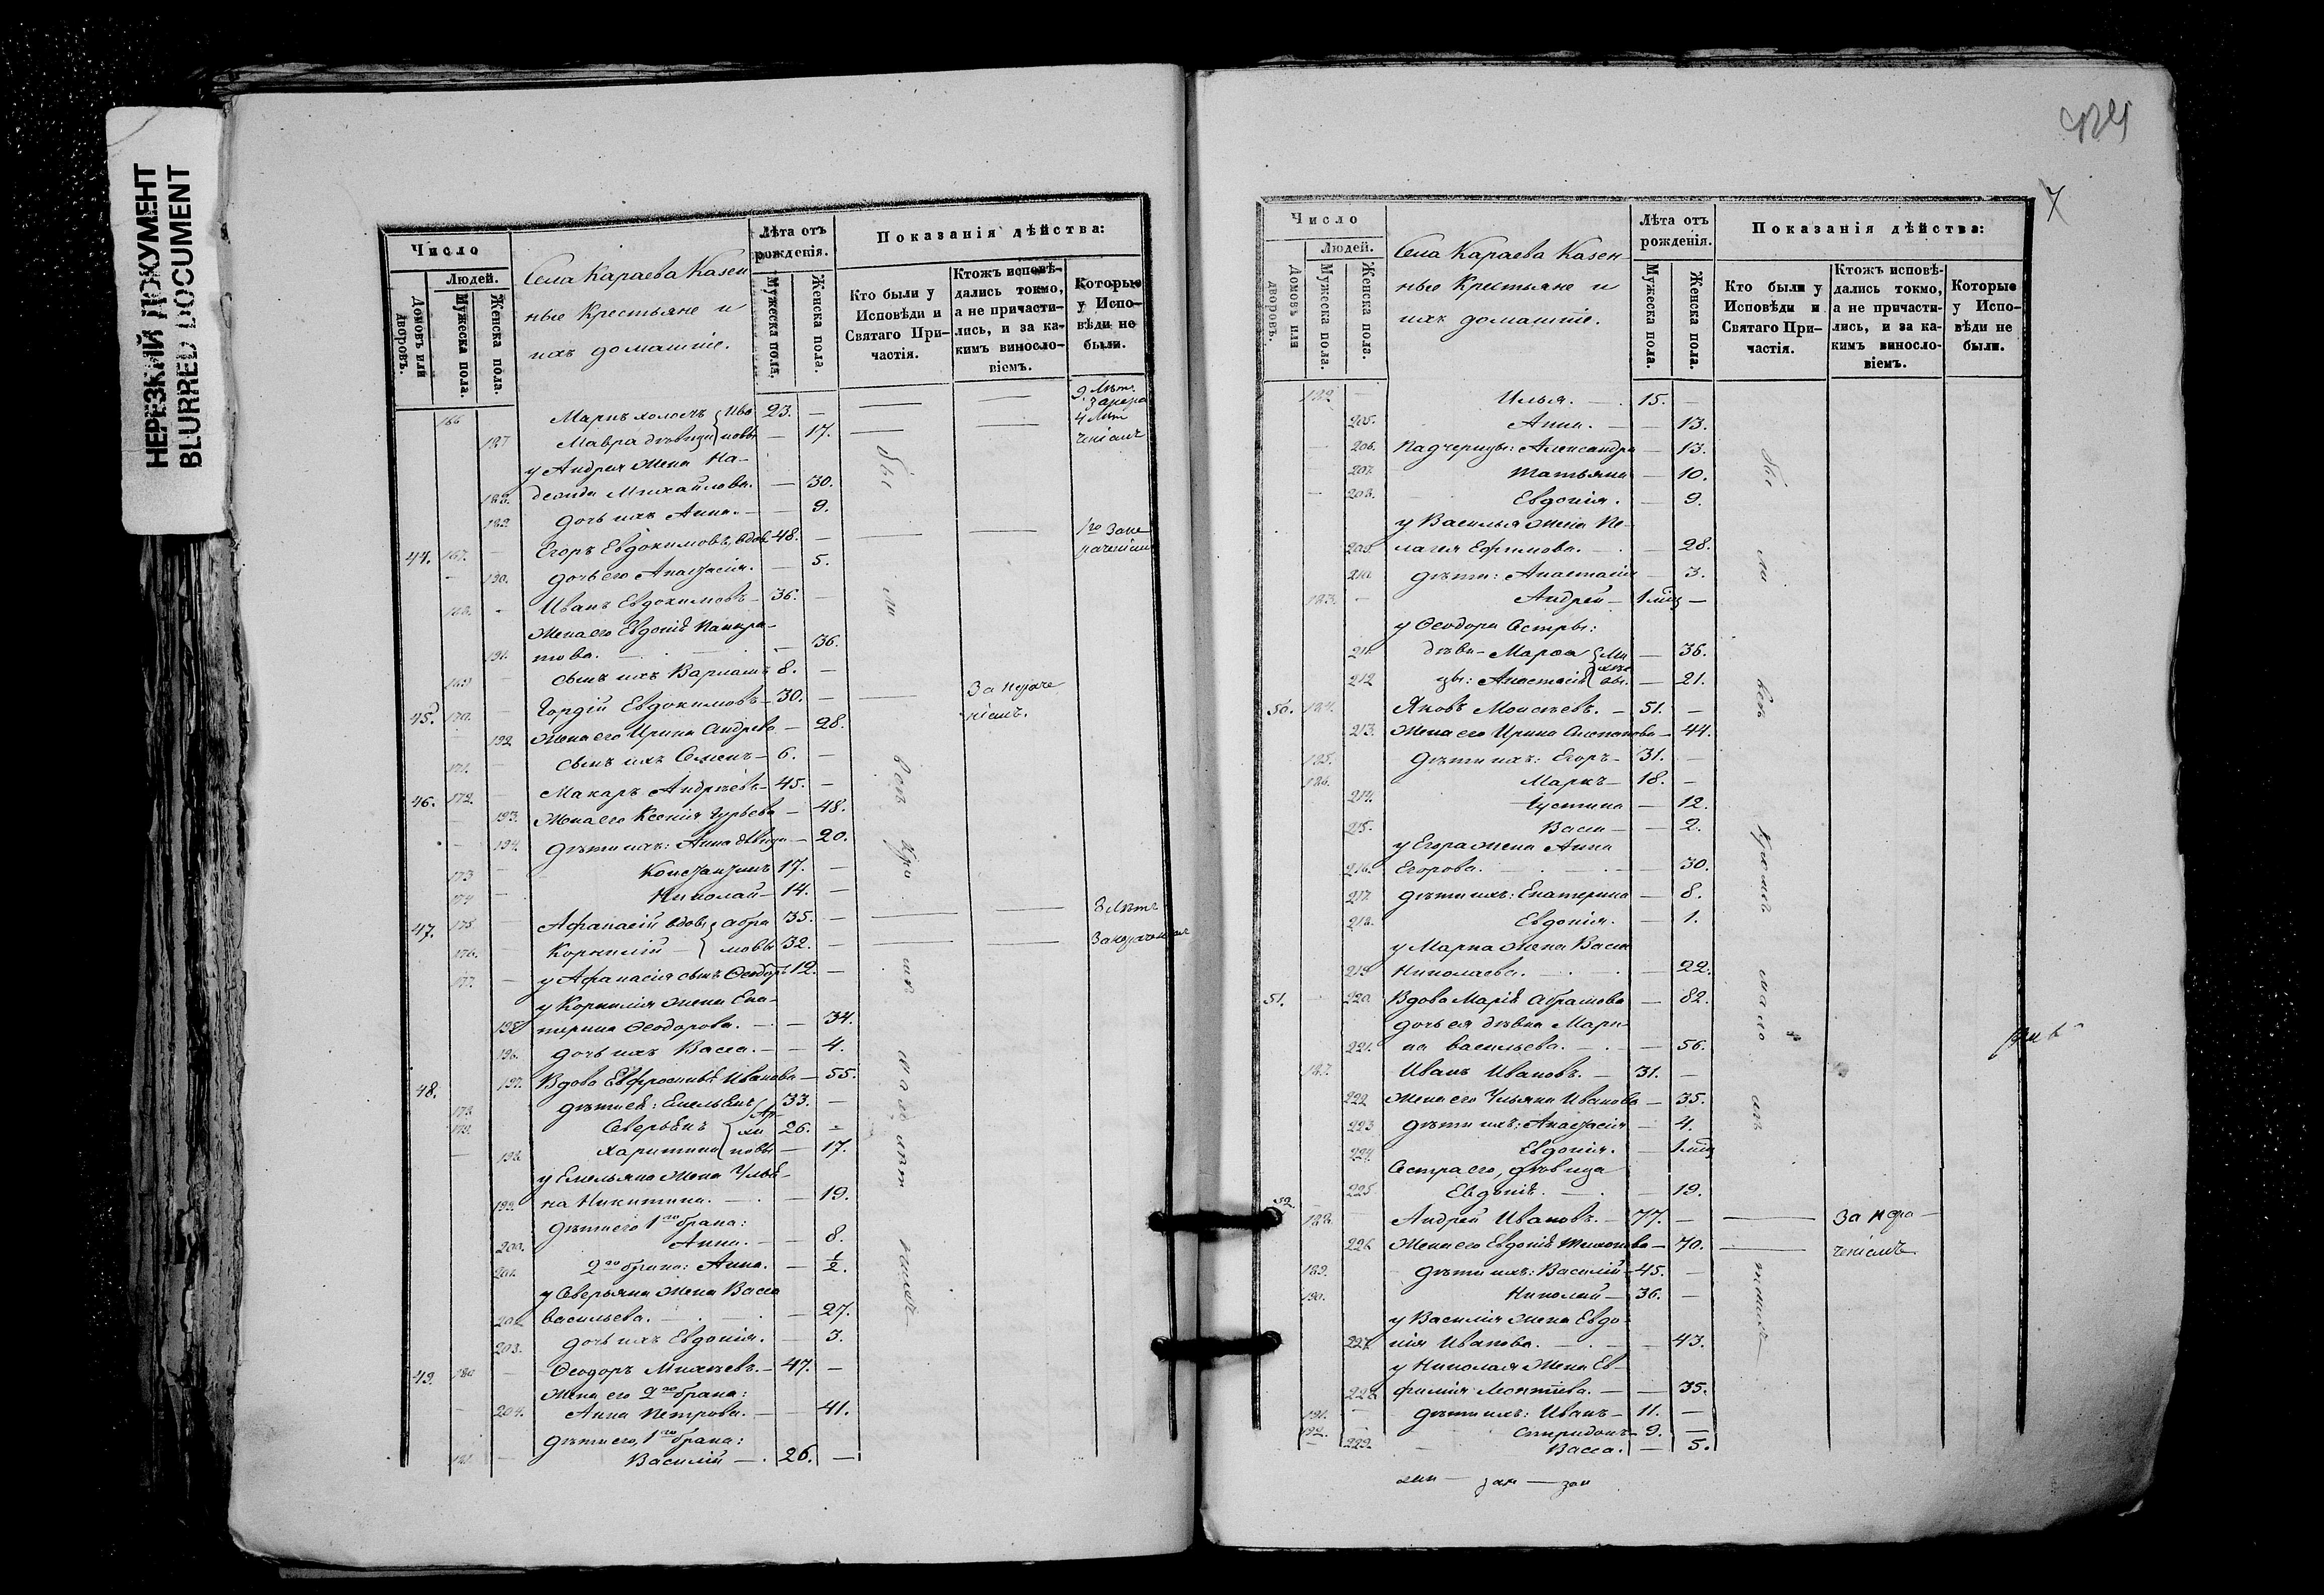 НЕРЕЗКИЙ ДОКУМЕНТ
BLURRED DOCUMENT
Число
Людей.
Домовъ или дворовъ.
Мужеска пола.
Женска пола.
Села Караева Казен
ные Крестьяне и
ихъ домашніе.
Лѣта отъ рожденія.
Мужеска пола.
Женска пола.
Показанія дѣйства:
Кто были у Исповѣди и Святаго Причастія.
Ктожъ исповѣдались токмо, а не причастились, и за какимъ винословіемъ.
Которые у Исповѣди не были.
166 Маркъ холостъ Ива 23. — 9. Лѣтъ
187 Мавра дѣвица новы — 17. 4 Лѣт
у Андрея жена На-
188. дежда Михайлова. — 30.
189. дочь ихъ Анна. — 9.
44. 167. Егоръ Евдокимовъ, вдов. 48. —
190. дочь его Анастасія. — 5.
168. Иванъ Евдокимовъ — 36. —
жена его Евдокія Панкра-
191. това. — 36.
169 сынъ ихъ Варлаамъ 8. —
45. 170. Гордій Евдокимовъ — 30. — За нераче
ніемъ.
192 жена его Ирина Андреева — 28.
171. сынъ ихъ Семенъ — 6. —
46. 172. Макаръ Андреевъ — 45. —
193. жена его Ксенія Гурьева — 48.
194. дѣти ихъ: Анна дѣвица — 20.
173 Константинъ 17. —
174 Николай — 14. —
47. 175. Афанасій вдовъ Абра 35. — 3 Лѣтъ
176. Корнилій мовы 32. — За нераченіемъ
177. у Афанасія сынъ Ѳеодоръ 12. —
у Корнилія жена Ека-
195 терина Ѳеодорова. — 34.
196. дочь ихъ Васса. — 4.
48. 197. Вдова Евфросинія Иванова — 55.
178. дѣти ея: Емельянъ Ар 33. —
179. Северьянъ хи 26. —
198. Харитина повы — 17.
у Емельяна жена Улья-
199. на Никитина. — 19.
дѣти его 1го брака:
200. Анна. — 8.
201. 2го брака: Анна. — ½.
у Северьяна жена Васса
202 Васильева. — 27.
203. дочь ихъ Евдокія. — 3.
49. 180 Ѳеодоръ Михѣевъ. — 47. —
жена его 2го брака:
204. Анна Петрова. — 41.
дѣти его, 1го брака:
181. Василій — 26. —
7
Число
Людей.
Домовъ или дворовъ.
Мужеска пола.
Женска пола.
Села Караева Казен-
ные Крестьяне и
ихъ домашніе.
Лѣта отъ рожденія.
Мужеска пола.
Женска пола.
Показанія дѣйства:
Кто были у Исповѣди и Святаго Причастія.
Ктожъ исповѣдались токмо, а не причастились, и за какимъ винословіемъ.
Которые у Исповѣди не были.
182 Илья. — 15. —
205. Анна. — 13.
206. Падчерицы: Александра — 13.
207. Татьяна — 10.
208. Евдокія. — 9.
у Василья жена Пе-
209. лагея Ефимова. — 28.
210. дѣти: Анастасія — 3.
183. Андрей — 1 мѣц —
у Ѳеодора Сестры:
211. дѣви- Марѳа Ми — 36.
212 цы: Анастасія хѣе вы. — 21.
50. 184. Яковъ Моисѣевъ. — 51. —
213. жена его Ирина Антонова — 44.
185. дѣти ихъ: Егоръ — 31. —
186. Маркъ — 18. —
214. Іустина — 12.
215. Васса — 2.
у Егора жена Анна
216. Егорова. — 30.
217. дѣти ихъ: Екатерина — 8.
218. Евдокія. — 1.
у Марка жена Васса
219 Николаева. — 22.
51. 220. Вдова Марія Абрамова — 82.
дочь ея дѣвка Мари-
221. на Васильева. — 56.
187. Иванъ Ивановъ. — 31. —
222 жена его Ульяна Иванова — 35.
223 дѣти ихъ: Анастасія — 4.
224. Евдокія. — 1 мѣц
Сестра его, дѣвица
225 Евдокія. — 19.
52. 188. Андрей Ивановъ. — 77. — За нера-
226 жена его Евдокія Тихонова — 70. — ченіемъ
189. дѣти ихъ: Василій — 45. —
190. Николай — 36. —
у Василія жена Евдо-
227. кія Иванова. — 43.
у Николая жена Ев-
228. фимія Леонтіева. — 35.
191. дѣти ихъ: Иванъ — 11. —
192. Спиридонъ — 9. —
229. Васса. — 5.